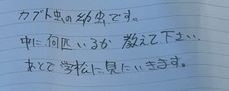 カブト虫の幼虫です。
中に何匹いるか教えて下さい。
あとで学松に見にいきます。